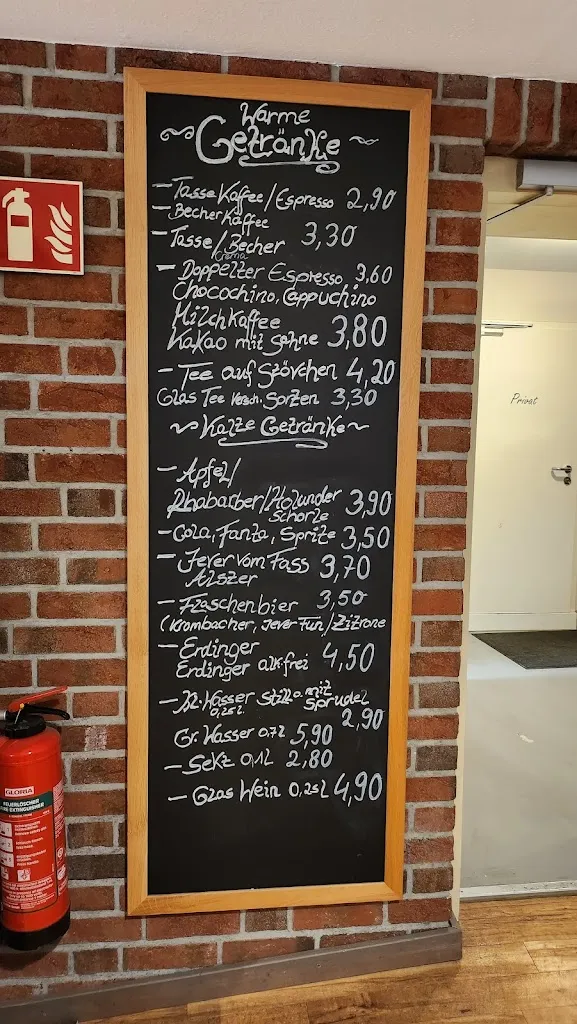 Warme
Getränke
- Tasse Kaffee / Espresso 2,90
- Becher Kaffee
- Tasse / Becher 3,30
Crema
- Doppelter Espresso 3,60
Chocochino, Cappuchino
Milchkaffee
Kakao mit Sahne 3,80
- Tee auf Stövchen 4,20
Glas Tee versch. Sorten 3,30
~ Kalte Getränke ~
- Apfel/
Rhabarber/Holunder 3,90
Schorle
- Cola, Fanta, Sprite 3,50
- Jever vom Fass 3,70
Alster
- Flaschenbier 3,50
(Krombacher, Jever Fun/Zitrone
- Erdinger
Erdinger alkfrei 4,50
- Kl. Wasser still o. mit
0,25l Sprudel
2,90
Gr. Wasser 0,7l 5,90
- Sekt 0,1L 2,80
- Glas Wein 0,25l 4,90
Privat
GLORIA
FEUERLÖSCHER
FIRE EXTINGUISHER